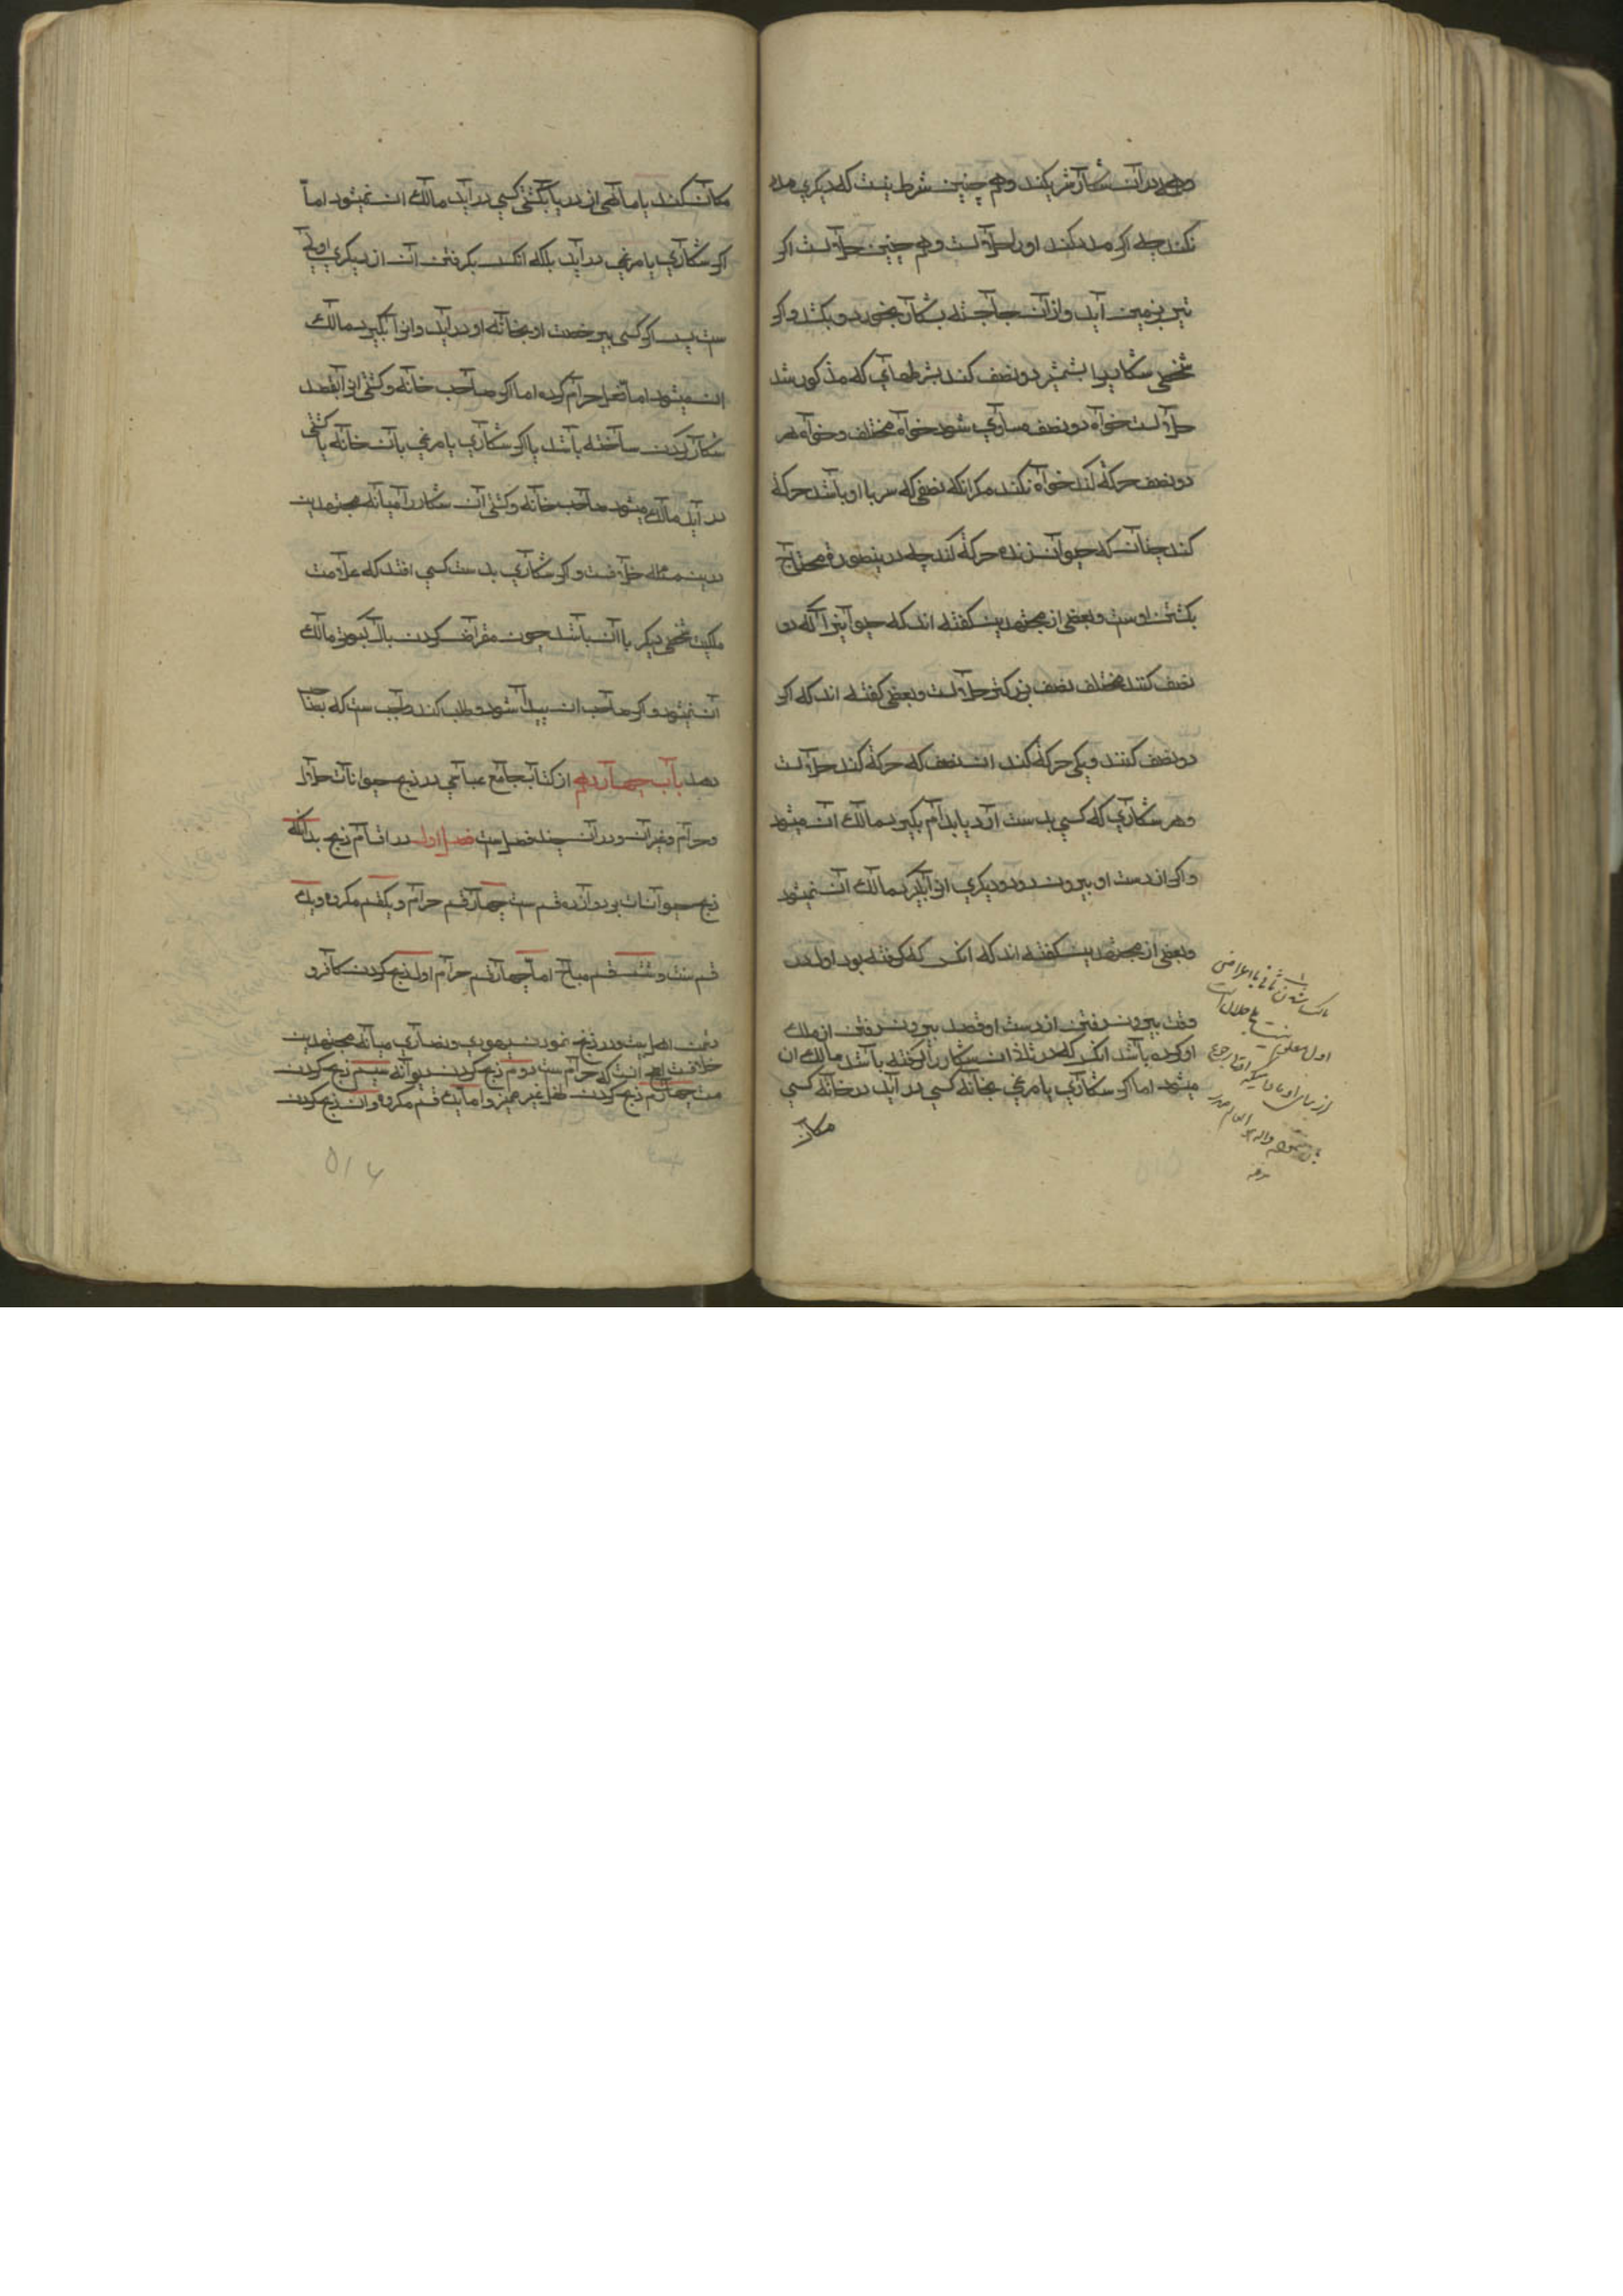 و همه در آن شکار شریکند و هم چنین شرط نیست که دیگری مدد
نکند چه اکر مدد کند او را حلالست و هم چنین حلالست اکر
تیر بزمین آید و از آن جا جسته بشکار بخورد و بکشد و اکر
شخصی شکاریرا بشمشیر دو نصف کند بشرطهای که مذکور شد
حلالست خواه دو نصف مساوی شود خواه مختلف و خواه هر
دو نصف حرکة کند خواه نکند مکر انکه نصفی که سر با او باشد حرکة
کند چنان که حیوان زنده حرکة کند چه درینصورة محتاج
بکشتن اوست و بعضی از مجتهدین کفته اند که حیوانیرا که دو
نصف کنند مختلف نصف بزرکتر حلالست و بعضی کفته اند که اکر
دو نصف کنند و یکی حرکة کند ان نصف که حرکة کند حلالست
و هر شکاری که کسی بدست آرد یا بدام بکیرد مالک آن میشود
و اکر از دست او بیرون رود و دیکری انرا بکیرد مالک آن نمیشود
و بعضی از مجتهدین کفته اند که انکس که کرفته بود اول در
وقت بیرون رفتن از دست او قصد بیرون رفتن از ملک
او کرده باشد انکس که در ثانی ان شکار را کرفته باشد مالک ان
میشود اما اکر شکاری یا مرغی بخانه کسی در آید در خانه کسی
مکان
مکان کند یا ماهی از دریا بکشتی کسی در آید مالک ان نمیشود اما
اکر شکاری یا مرغی در آید بلکه انکس بکرفتن آن از دیکری اولی
ست پس اکر کسی بی رخصت او بخانه او در آید و انرا بکیرد مالک
ان میشود اما فعل حرام کرده اما اکر صاحب خانه و کشتی انرا بقصد
شکار کردن ساخته باشد یا اکر شکاری یا مرغی بان خانه یا کشتی
در آید مالک میشود صاحب خانه و کشتی آن شکار را میانه مجتهدین
درین مسئله خلافست و اکر شکاری بدست کسی افتد که علامت
ملکیت شخصی دیکر با ان باشد چون مقراض کردن بال کبوتر مالک
آن نمیشود و اکر صاحب ان پیدا شود و طلب کند واجب ست که بصاحب
دهد باب چهاردهم از کتاب جامع عباسی در ذبح حیوانات حلال
و حرام و غیر آن و در آن چند فصل ست فصل اول در اقسام ذبح بدانکه
ذبح حیوانات بر دوازده قسم ست چهار قسم حرام و یکقسم مکروه و یک
قسم سنت و شش قسم مباح اما چهار قسم حرام اول ذبح کردن کافر و
دشمن اهل بیت و در ذبح نمودن یهودی و نصاری میانه مجتهدین
خلافست اصح آنست که حرام ست دوم ذبح کردن دیوانه سیم ذبح کردن
مست چهارم ذبح کردن طفل غیر ممیز و اما یک قسم مکروه و ان ذبح کردن
۵۱۶